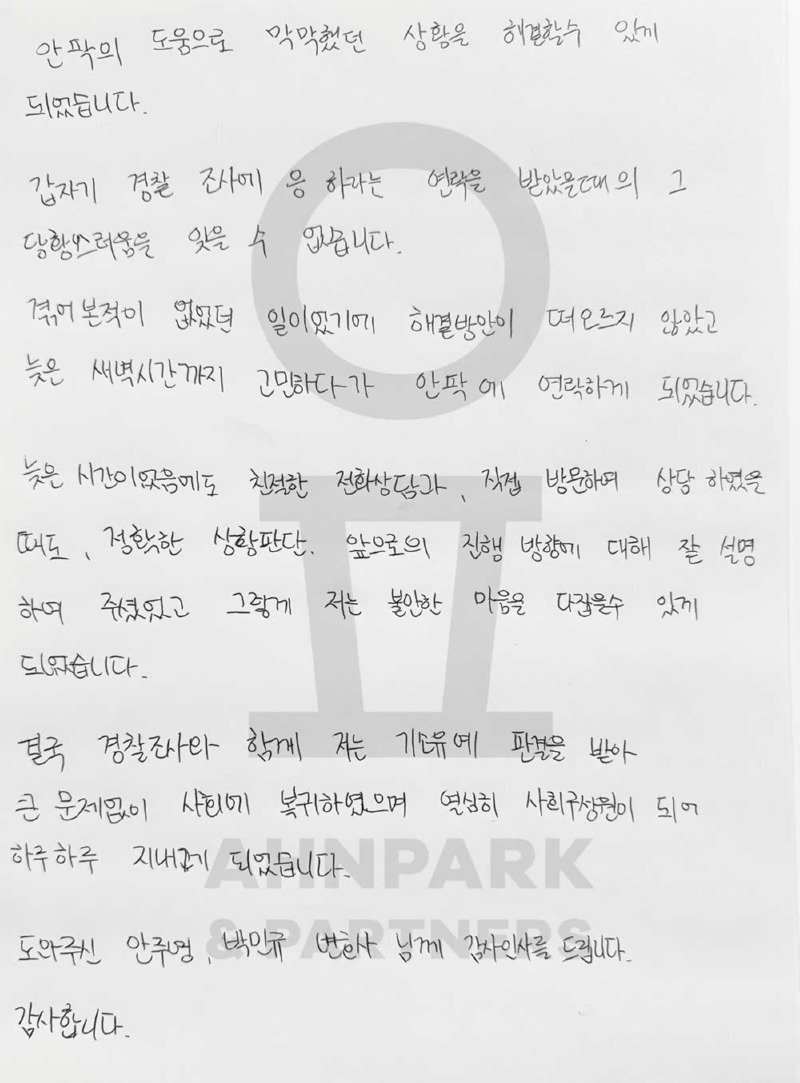 안팍의 도움으로 막막했던 상황을 해결할수 있게
되었습니다.
갑자기 경찰 조사에 응 하라는 연락을 받았을때의 그
당황스러움을 잊을 수 없습니다.
겪어본적이 없었던 일이었기에 해결방안이 떠오르지 않았고
늦은 새벽시간까지 고민하다가 안팍에 연락하게 되었습니다.
늦은 시간이었음에도 친절한 전화상담과, 직접 방문하여 상담 하였을
때도, 정확한 상황판단. 앞으로의 진행 방향에 대해 잘 설명
하여 주셨었고 그렇게 저는 불안한 마음을 다잡을수 있게
되었습니다.
결국 경찰조사와 함께 저는 기소유예 판결을 받아
큰 문제없이 사회에 복귀하였으며 열심히 사회구성원이 되어
하루하루 지내게 되었습니다.
AHNPARK
& PARTNERS
도와주신 안주영, 박민규 변호사 님께 감사인사를 드립니다.
감사합니다.